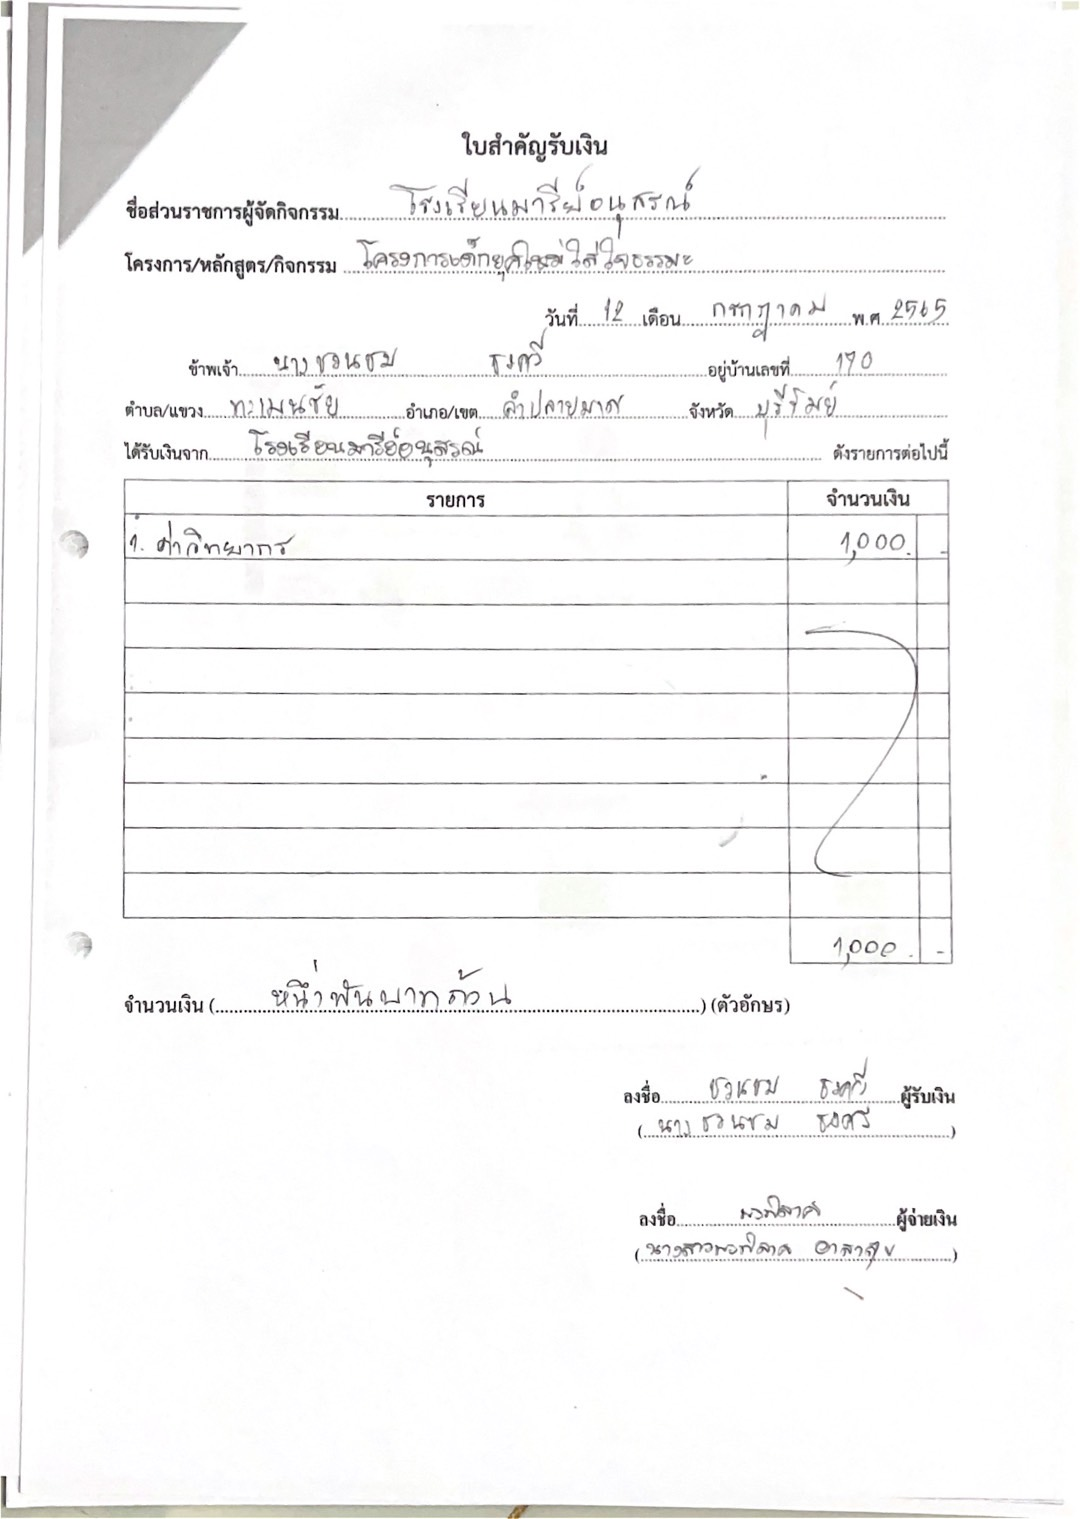 ใบสำคัญรับเงิน
ชื่อส่วนราชการผู้จัดกิจกรรม โรงเรียนมารีย์อนุสรณ์
โครงการ/หลักสูตร/กิจกรรม โครงการเด็กยุคใหม่ใส่ใจธรรมะ
วันที่ 12 เดือน กรกฎาคม พ.ศ 2565
ข้าพเจ้า นางชวนชม ธงศรี อยู่บ้านเลขที่ 170
ตำบล/แขวง ทะเมนชัย อำเภอ/เขต ลำปลายมาศ จังหวัด บุรีรัมย์
ได้รับเงินจาก โรงเรียนมารีย์อนุสรณ์ ดังรายการต่อไปนี้
รายการ จำนวนเงิน
1. ค่าวิทยากร 1,000. -
1,000. -
จำนวนเงิน (หนึ่งพันบาทถ้วน) (ตัวอักษร)
ลงชื่อ ชวนชม ธงศรี ผู้รับเงิน
(นางชวนชม ธงศรี)
ลงชื่อ ผู้จ่ายเงิน
(นางสาว)